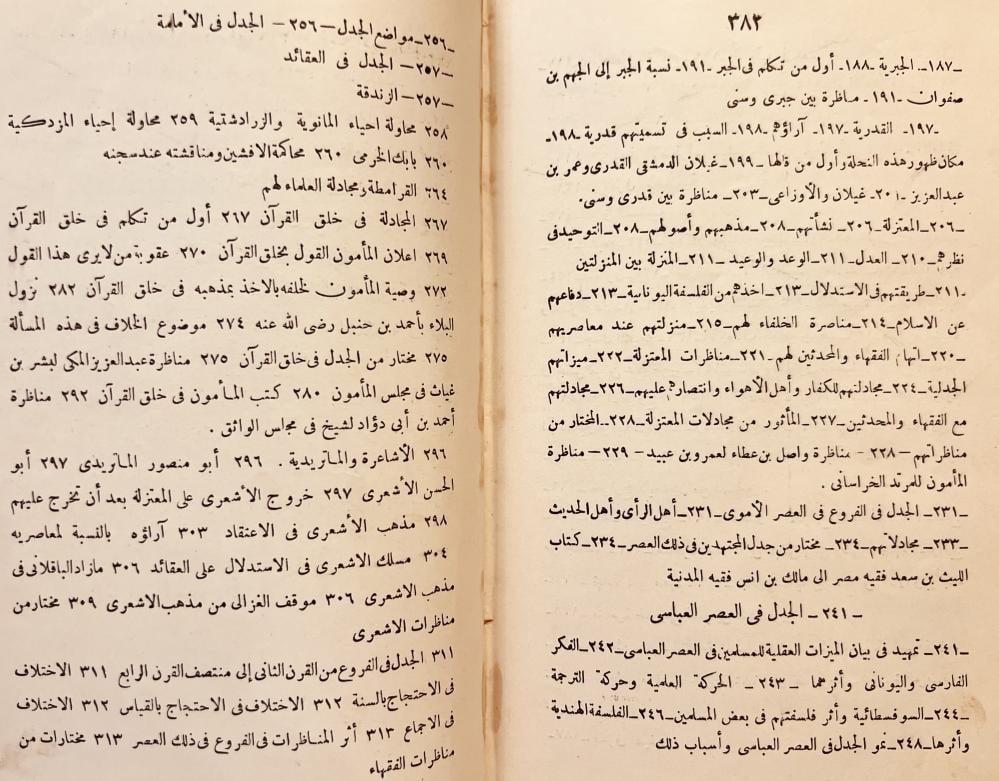 ٣٨٢
_١٨٧_ الجبرية _١٨٨_ أول من تكلم فى الجبر _١٩١_ نسبة الجبر إلى الجهم بن
صفوان _١٩١_ مناظرة بين جبرى وسنى
_١٩٧_ القدرية _١٩٧_ آراؤهم _١٩٨_ السبب فى تسميتهم قدرية _١٩٨_
مكان ظهور هذه النحلة وأول من قالها _١٩٩_ غيلان الدمشقى القدرى وعمر بن
عبد العزيز _٢٠١_ غيلان والأوزاعى _٢٠٣_ مناظرة بين قدرى وسنى.
_٢٠٦_ المعتزلة _٢٠٦_ نشأتهم _٢٠٨_ مذهبهم وأصولهم _٢٠٨_ التوحيد فى
نظرهم _٢١٠_ العدل _٢١١_ الوعد والوعيد _٢١١_ المنزلة بين المنزلتين
_٢١١_ طريقتهم فى الاستدلال _٢١٣_ اخذهم من الفلسفة اليونانية _٢١٣_ دفاعهم
عن الاسلام _٢١٤_ مناصرة الخلفاء لهم _٢١٥_ منزلتهم عند معاصريهم
_٢٢٠_ اتهام الفقهاء والمحدثين لهم _٢٢١_ مناظرات المعتزلة _٢٢٢_ ميزاتهم
الجدلية _٢٢٤_ مجادلتهم للكفار وأهل الأهواء وانتصارهم عليهم _٢٢٦_ مجادلتهم
مع الفقهاء والمحدثين _٢٢٧_ المأثور من مجادلات المعتزلة _٢٢٨_ المختار من
مناظراتهم — ٢٢٨ — مناظرة واصل بن عطاء لعمرو بن عبيد — ٢٢٩ — مناظرة
المأمون للمرتد الخراسانى .
_٢٣١_ الجدل فى الفروع فى العصر الأموى _٢٣١_ أهل الرأى وأهل الحديث
_٢٣٣_ مجادلاتهم _٢٣٤_ مختار من جدل المجتهدين فى ذلك العصر _٢٣٤_ كتاب
الليث بن سعد فقيه مصر الى مالك بن انس فقيه المدنية
_ ٢٤١ _ الجدل فى العصر العباسى
_٢٤١_ تمهيد فى بيان الميزات العقلية للمسلمين فى العصر العباسى _٢٤٢_ الفكر
الفارسى واليونانى وأثرهما _ ٢٤٣_ الحركة العلمية وحركة الترجمة
_٢٤٤_ السوفسطائية وأثر فلسفتهم فى بعض المسلمين _٢٤٦_ الفلسفة الهندية
وأثرها _٢٤٨_ نمو الجدل فى العصر العباسى وأسباب ذلك
_٢٥٦_ مواضع الجدل — ٢٥٦ — الجدل فى الأمامة
_٢٥٧_ الجدل فى العقائد
_٢٥٧_ الزندقة
٢٥٨ محاولة احياء المانوية والزرادشتية ٢٥٩ محاولة إحياء المزدكية
٢٦٠ بابك الخرمى ٢٦٠ محاكمة الافشين ومناقشته عند سجنه
٢٦٤ القرامطة ومجادلة العلماء لهم
٢٦٧ المجادلة فى خلق القرآن ٢٦٧ أول من تكلم فى خلق القرآن
٢٦٩ اعلان المأمون القول بخلق القرآن ٢٧٠ عقوبة من لا يرى هذا القول
٢٧٢ وصية المأمون لخلفه بالاخذ بمذهبه فى خلق القرآن ٢٨٢ نزول
البلاء بأحمد بن حنبل رضى الله عنه ٢٧٤ موضوع الخلاف فى هذه المسألة
٢٧٥ مختار من الجدل فى خلق القرآن ٢٧٥ مناظرة عبد العزيز المكى لبشر بن
غياث فى مجلس المأمون ٢٨٠ كتب المأمون فى خلق القرآن ٢٩٢ مناظرة
أحمد بن أبى دؤاد لشيخ فى مجلس الواثق .
٢٩٦ الأشاعرة والماتريدية . ٢٩٦ أبو منصور الماتريدى ٢٩٧ أبو
الحسن الأشعرى ٢٩٧ خروج الأشعرى على المعتزلة بعد أن تخرج عليهم
٢٩٨ مذهب الأشعرى فى الاعتقاد ٣٠٣ آراؤه بالنسبة لمعاصريه
٣٠٤ مسلك الاشعرى فى الاستدلال على العقائد ٣٠٦ مازاد الباقلانى فى
مذهب الاشعرى ٣٠٦ موقف الغزالى من مذهب الاشعرى ٣٠٩ مختار من
مناظرات الاشعرى
٣١١ الجدل فى الفروع من القرن الثانى إلى منتصف القرن الرابع ٣١١ الاختلاف
فى الاحتجاج بالسنة ٣١٢ الاختلاف فى الاحتجاج بالقياس ٣١٢ الاختلاف
فى الاجماع ٣١٣ أثر المناظرات فى الفروع فى ذلك العصر ٣١٣ مختارات من
مناظرات الفقهاء